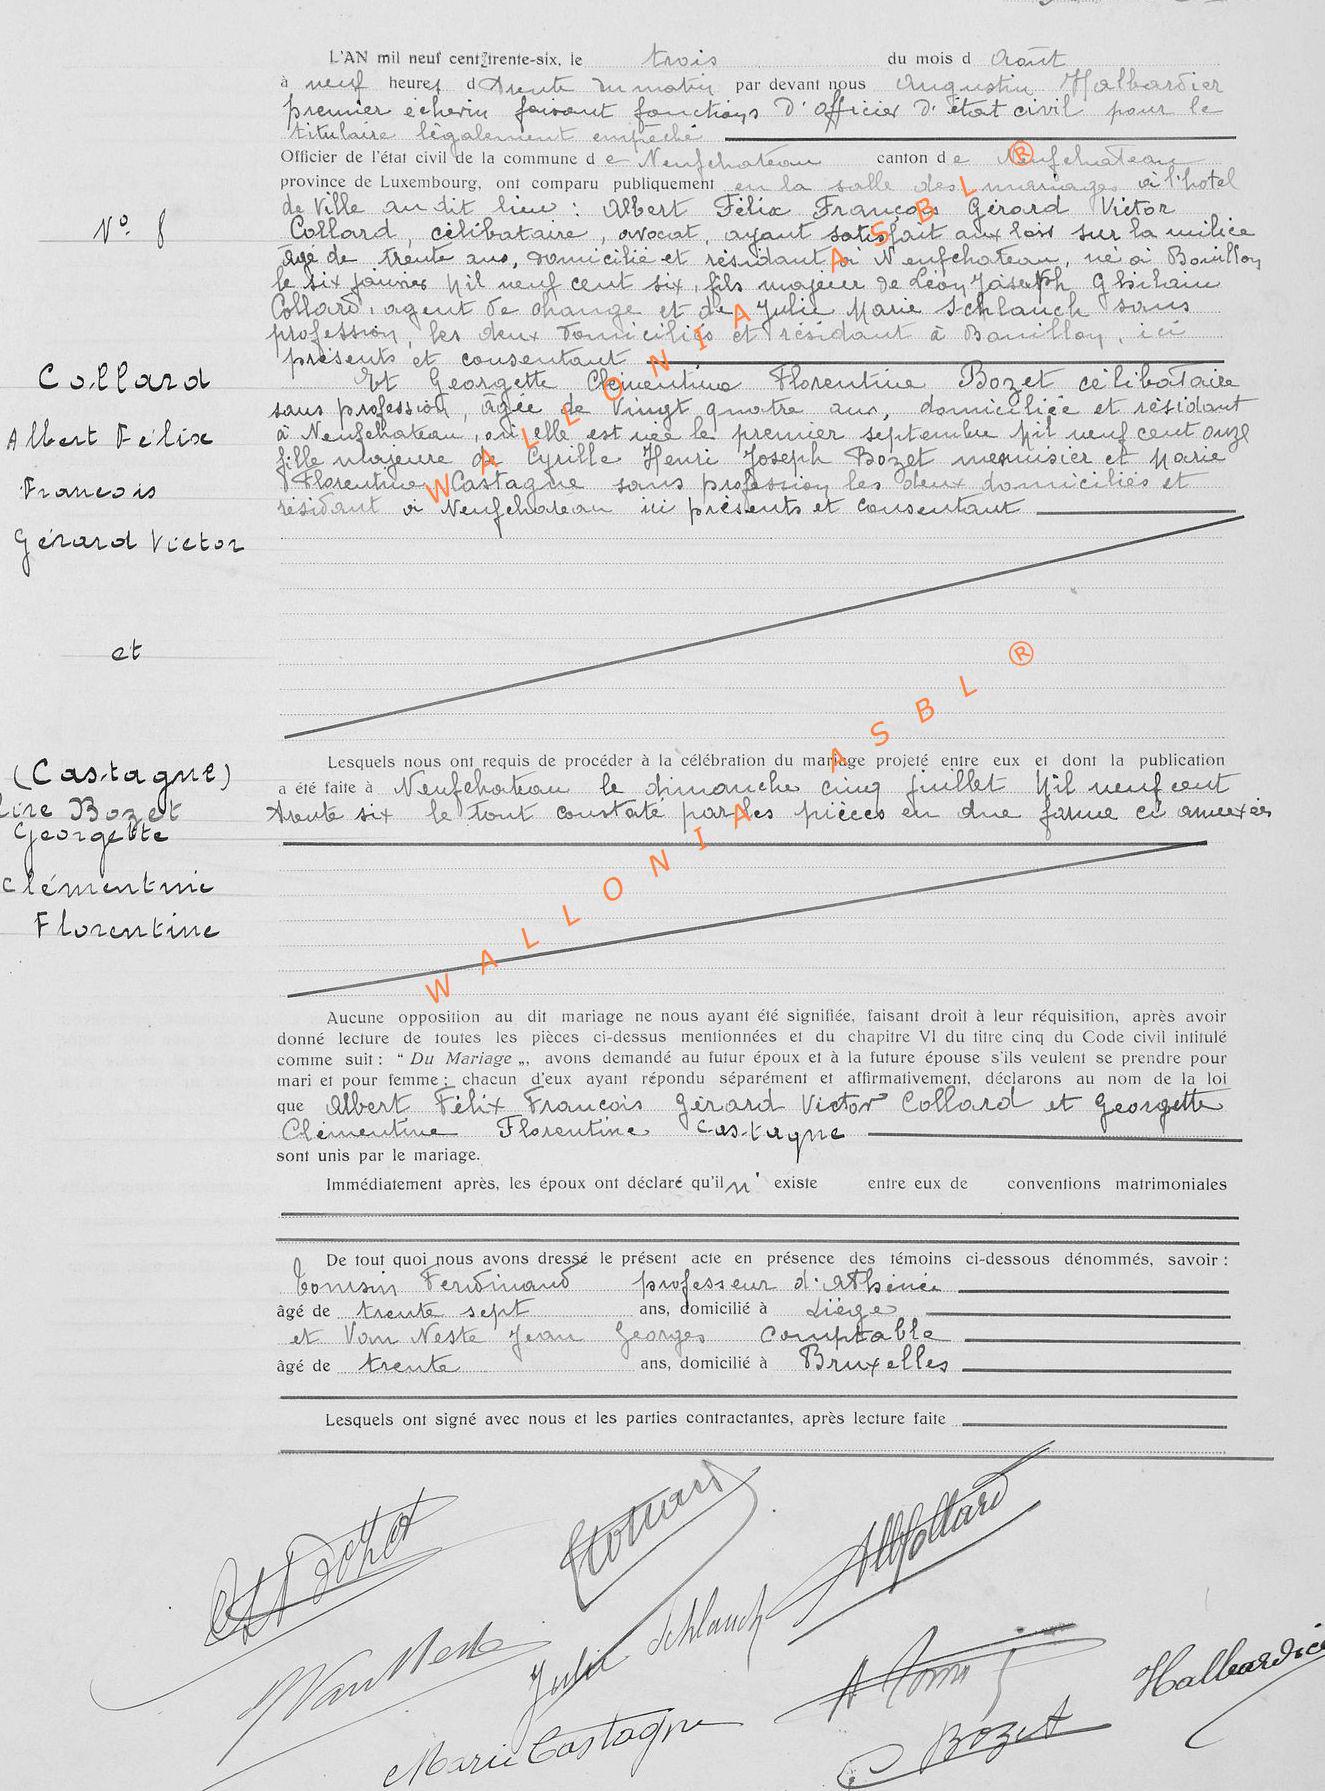 L'AN mil neuf cent trente-six, le trois du mois d Août
à neuf heures d trente du matin par devant nous Augustin Halbardier
premier échevin faisant fonctions d'officier d'état civil pour le
titulaire légalement empêché
Officier de l'état civil de la commune de Neufchateau canton de Neufchateau
province de Luxembourg, ont comparu publiquement en la salle des mariages à l'hotel
de Ville au dit lieu : Albert Félix François Gérard Victor
N° 8
Collard, célibataire, avocat, ayant satisfait aux lois sur la milice
âgé de trente ans, domicilié et résidant à Neufchateau, né à Bouillon
le six janvier Mil neuf cent six, fils majeur de Léon Joseph Ghilain
Collard, agent de change et de Julie Marie Schlauch sans
profession, les deux domiciliés et résidant à Bouillon, ici
présents et consentant
Collard
Albert Félix
Francois
Gérard Victor
et
(Castagne)
lire Bozet
Georgette
Clémentine
Florentine
Et Georgette Clémentine Florentine Bozet célibataire
sans profession, âgée de Vingt quatre ans, domiciliée et résidant
à Neufchateau, où elle est née le premier septembre Mil neuf cent onze
fille majeure de Cyrille Henri Joseph Bozet menuisier et Marie
Florentine Castagne sans profession les deux domiciliés et
résidant à Neufchateau ici présents et consentant
Lesquels nous ont requis de procéder à la célébration du mariage projeté entre eux et dont la publication
a été faite à Neufchateau le dimanche cinq juillet Mil neuf cent
trente six le tout constaté par les pièces en due forme ci annexées
Aucune opposition au dit mariage ne nous ayant été signifiée, faisant droit à leur réquisition, après avoir
donné lecture de toutes les pièces ci-dessus mentionnées et du chapitre VI du titre cinq du Code civil intitulé
comme suit : “ Du Mariage „, avons demandé au futur époux et à la future épouse s'ils veulent se prendre pour
mari et pour femme ; chacun d'eux ayant répondu séparément et affirmativement, déclarons au nom de la loi
que Albert Félix François Gérard Victor Collard et Georgette
Clémentine Florentine Castagne
sont unis par le mariage.
Immédiatement après, les époux ont déclaré qu'il n' existe entre eux de conventions matrimoniales
De tout quoi nous avons dressé le présent acte en présence des témoins ci-dessous dénommés, savoir :
Tomsin Ferdinand professeur d'Athénée
âgé de trente sept ans, domicilié à Liège
et Van Neste Jean Georges comptable
âgé de trente ans, domicilié à Bruxelles
Lesquels ont signé avec nous et les parties contractantes, après lecture faite
Bozet
Collard
Collard
Van Neste
Julie Schlauch
Halbardier
Marie Castagne
Bozet
WALLONIA ASBL ®
WALLONIA ASBL ®